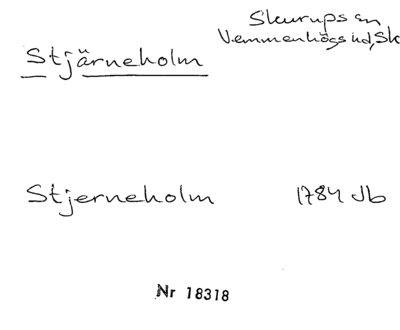 Skurups sn
Vemmenhögs hd, Sk
Stjärneholm
Stjerneholm 1784 Jb
Nr 18318